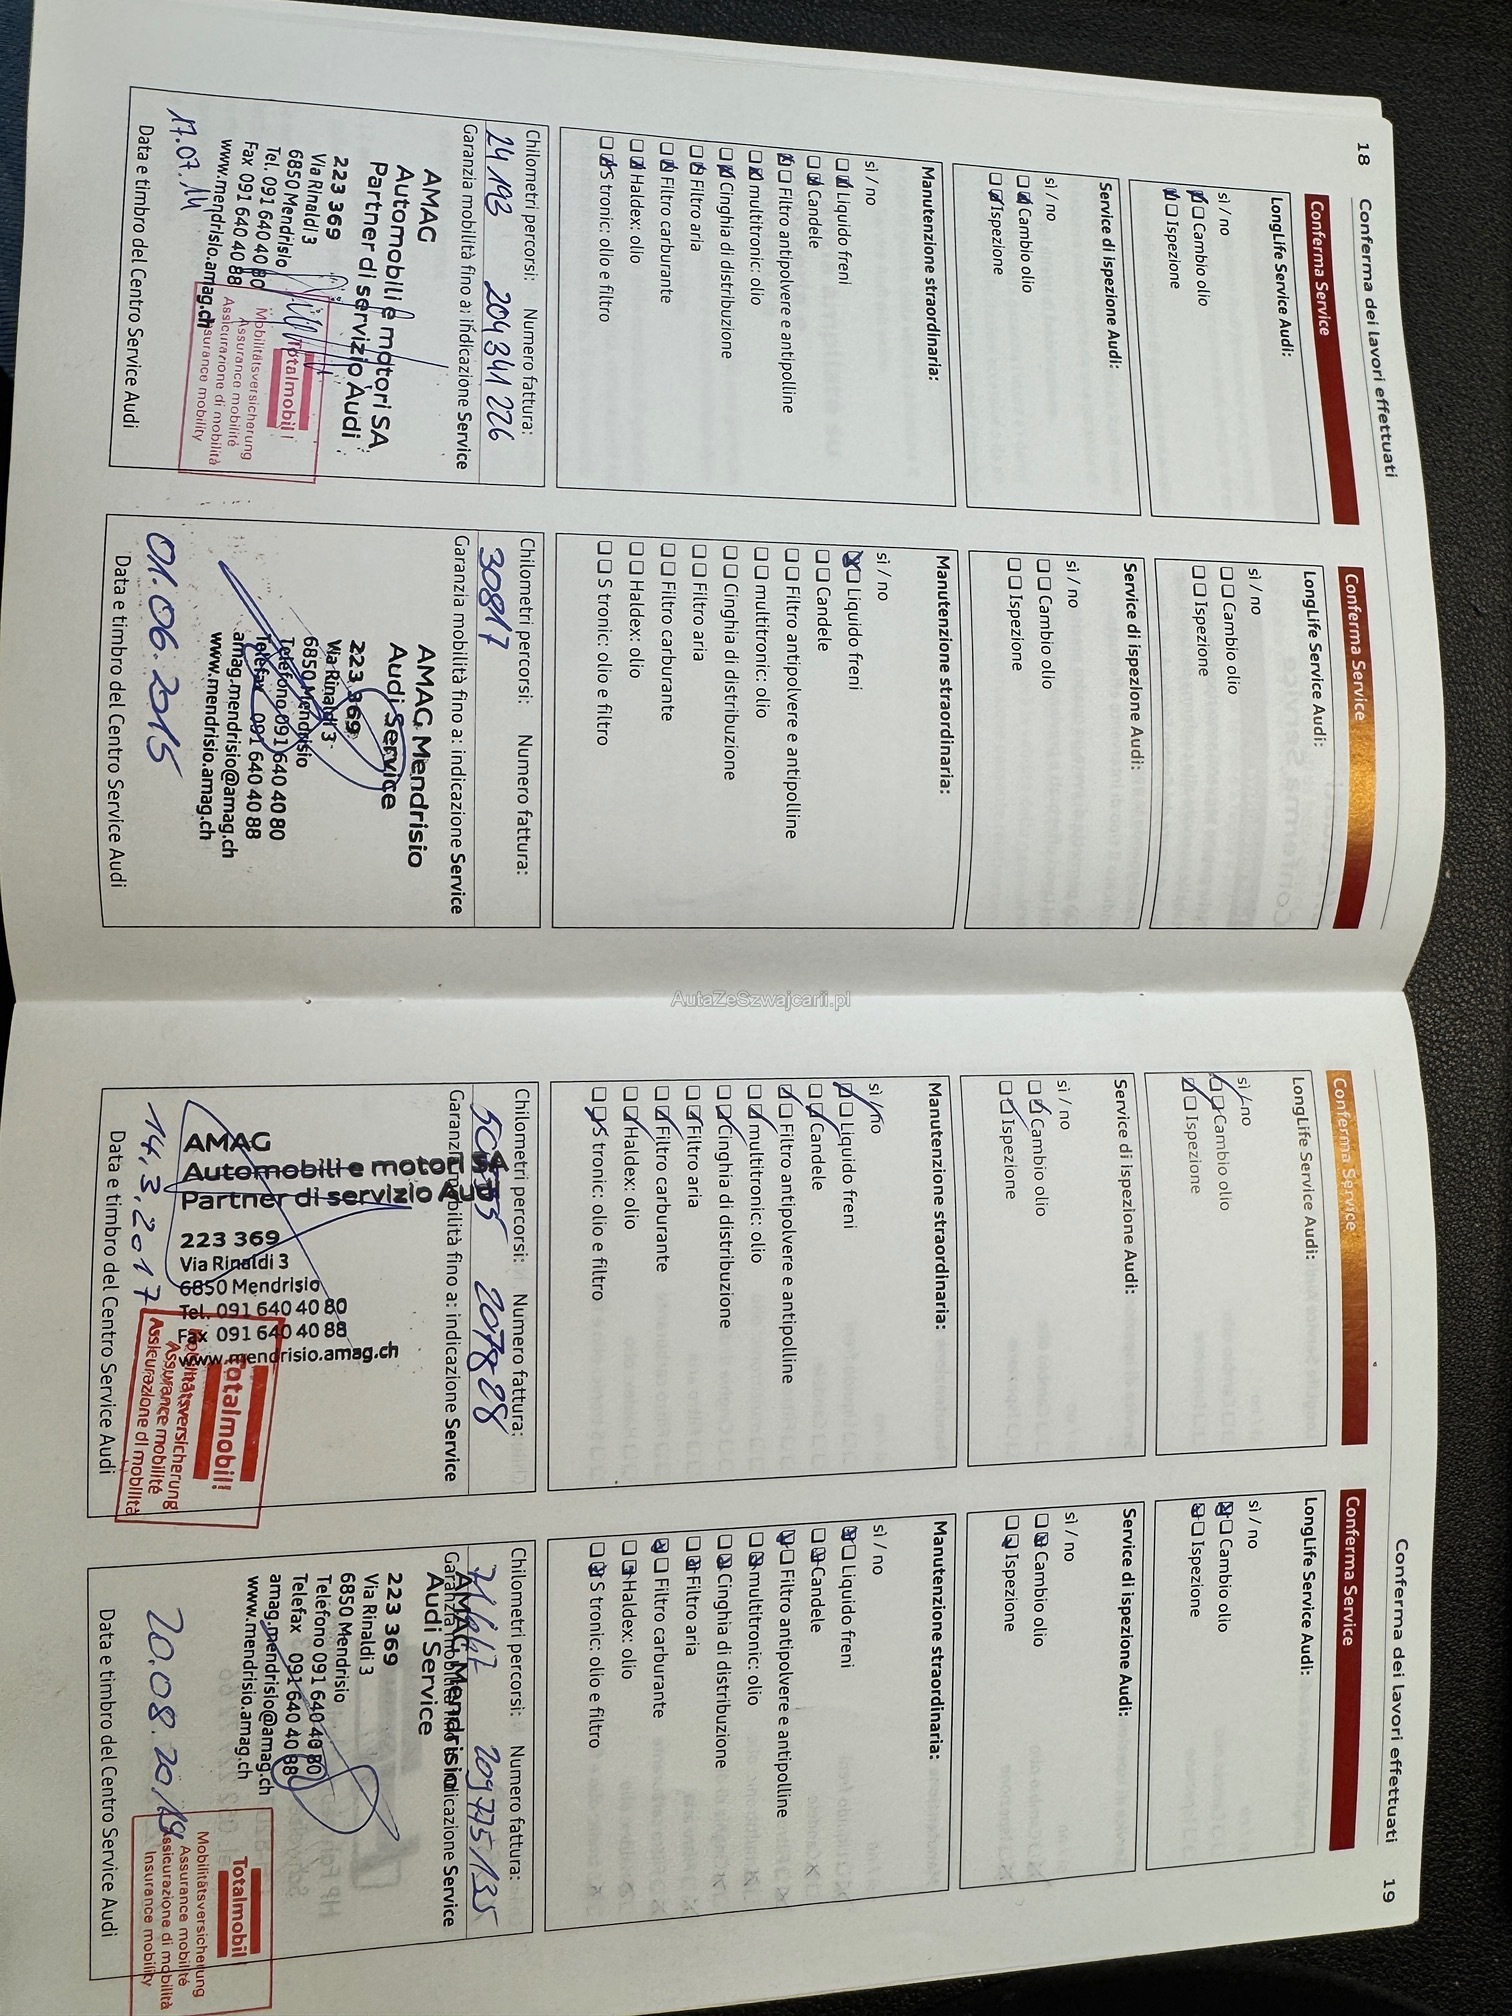 18
Conferma dei lavori effettuati
Conferma Service
LongLife Service Audi:
sì / no
Cambio olio
Ispezione
Service di ispezione Audi:
sì / no
Cambio olio
Ispezione
Manutenzione straordinaria:
sì / no
Liquido freni
Candele
Filtro antipolvere e antipolline
multitronic: olio
Cinghia di distribuzione
Filtro aria
Filtro carburante
Haldex: olio
S tronic: olio e filtro
Chilometri percorsi: Numero fattura:
24193 204341226
Garanzia mobilità fino a: indicazione Service
AMAG
Automobili e motori SA
Partner di servizio Audi
223 369
Via Rinaldi 3
6850 Mendrisio
Tel. 091 640 40 80
Fax 091 640 40 88
www.mendrisio.amag.ch
Totalmobil!
Mobilitätsversicherung
Assurance mobilité
Assicurazione di mobilità
Insurance mobility
17.07.14
Data e timbro del Centro Service Audi
Conferma Service
LongLife Service Audi:
sì / no
Cambio olio
Ispezione
Service di ispezione Audi:
sì / no
Cambio olio
Ispezione
Manutenzione straordinaria:
sì / no
Liquido freni
Candele
Filtro antipolvere e antipolline
multitronic: olio
Cinghia di distribuzione
Filtro aria
Filtro carburante
Haldex: olio
S tronic: olio e filtro
Chilometri percorsi: Numero fattura:
30817
Garanzia mobilità fino a: indicazione Service
AMAG Mendrisio
Audi Service
223 369
Via Rinaldi 3
6850 Mendrisio
Telefono 091 640 40 80
Telefax 091 640 40 88
amag.mendrisio@amag.ch
www.mendrisio.amag.ch
01.06.2015
Data e timbro del Centro Service Audi
AutaZeSzwajcarii.pl
Conferma dei lavori effettuati
19
Conferma Service
LongLife Service Audi:
sì / no
Cambio olio
Ispezione
Service di ispezione Audi:
sì / no
Cambio olio
Ispezione
Manutenzione straordinaria:
sì / no
Liquido freni
Candele
Filtro antipolvere e antipolline
multitronic: olio
Cinghia di distribuzione
Filtro aria
Filtro carburante
Haldex: olio
S tronic: olio e filtro
Chilometri percorsi: Numero fattura:
Garanzia mobilità fino a: indicazione Service
AMAG
Automobili e motori SA
Partner di servizio Audi
223 369
Via Rinaldi 3
6850 Mendrisio
Tel. 091 640 40 80
Fax 091 640 40 88
www.mendrisio.amag.ch
Totalmobil!
Mobilitätsversicherung
Assurance mobilité
Assicurazione di mobilità
14.3.2017
Data e timbro del Centro Service Audi
Conferma Service
LongLife Service Audi:
sì / no
Cambio olio
Ispezione
Service di ispezione Audi:
sì / no
Cambio olio
Ispezione
Manutenzione straordinaria:
sì / no
Liquido freni
Candele
Filtro antipolvere e antipolline
multitronic: olio
Cinghia di distribuzione
Filtro aria
Filtro carburante
Haldex: olio
S tronic: olio e filtro
Chilometri percorsi: Numero fattura:
209775135
Garanzia mobilità fino a: indicazione Service
AMAG Mendrisio
Audi Service
223 369
Via Rinaldi 3
6850 Mendrisio
Telefono 091 640 40 80
Telefax 091 640 40 88
amag.mendrisio@amag.ch
www.mendrisio.amag.ch
Totalmobil!
Mobilitätsversicherung
Assurance mobilité
Assicurazione di mobilità
Insurance mobility
20.08.2019
Data e timbro del Centro Service Audi